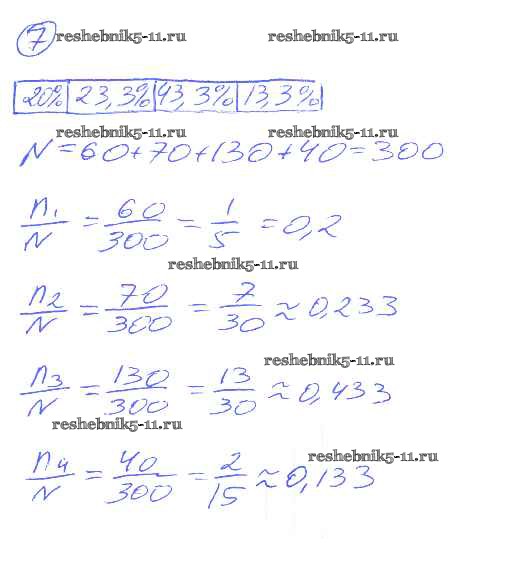 7 reshebnik5-11.ru reshebnik5-11.ru
20% 23,3% 43,3% 13,3%
reshebnik5-11.ru reshebnik5-11.ru
N=60+70+130+40=300
n1/N = 60/300 = 1/5 = 0,2
reshebnik5-11.ru
n2/N = 70/300 = 7/30 ≈ 0,233
reshebnik5-11.ru
n3/N = 130/300 = 13/30 ≈ 0,433
reshebnik5-11.ru
reshebnik5-11.ru
n4/N = 40/300 = 2/15 ≈ 0,133